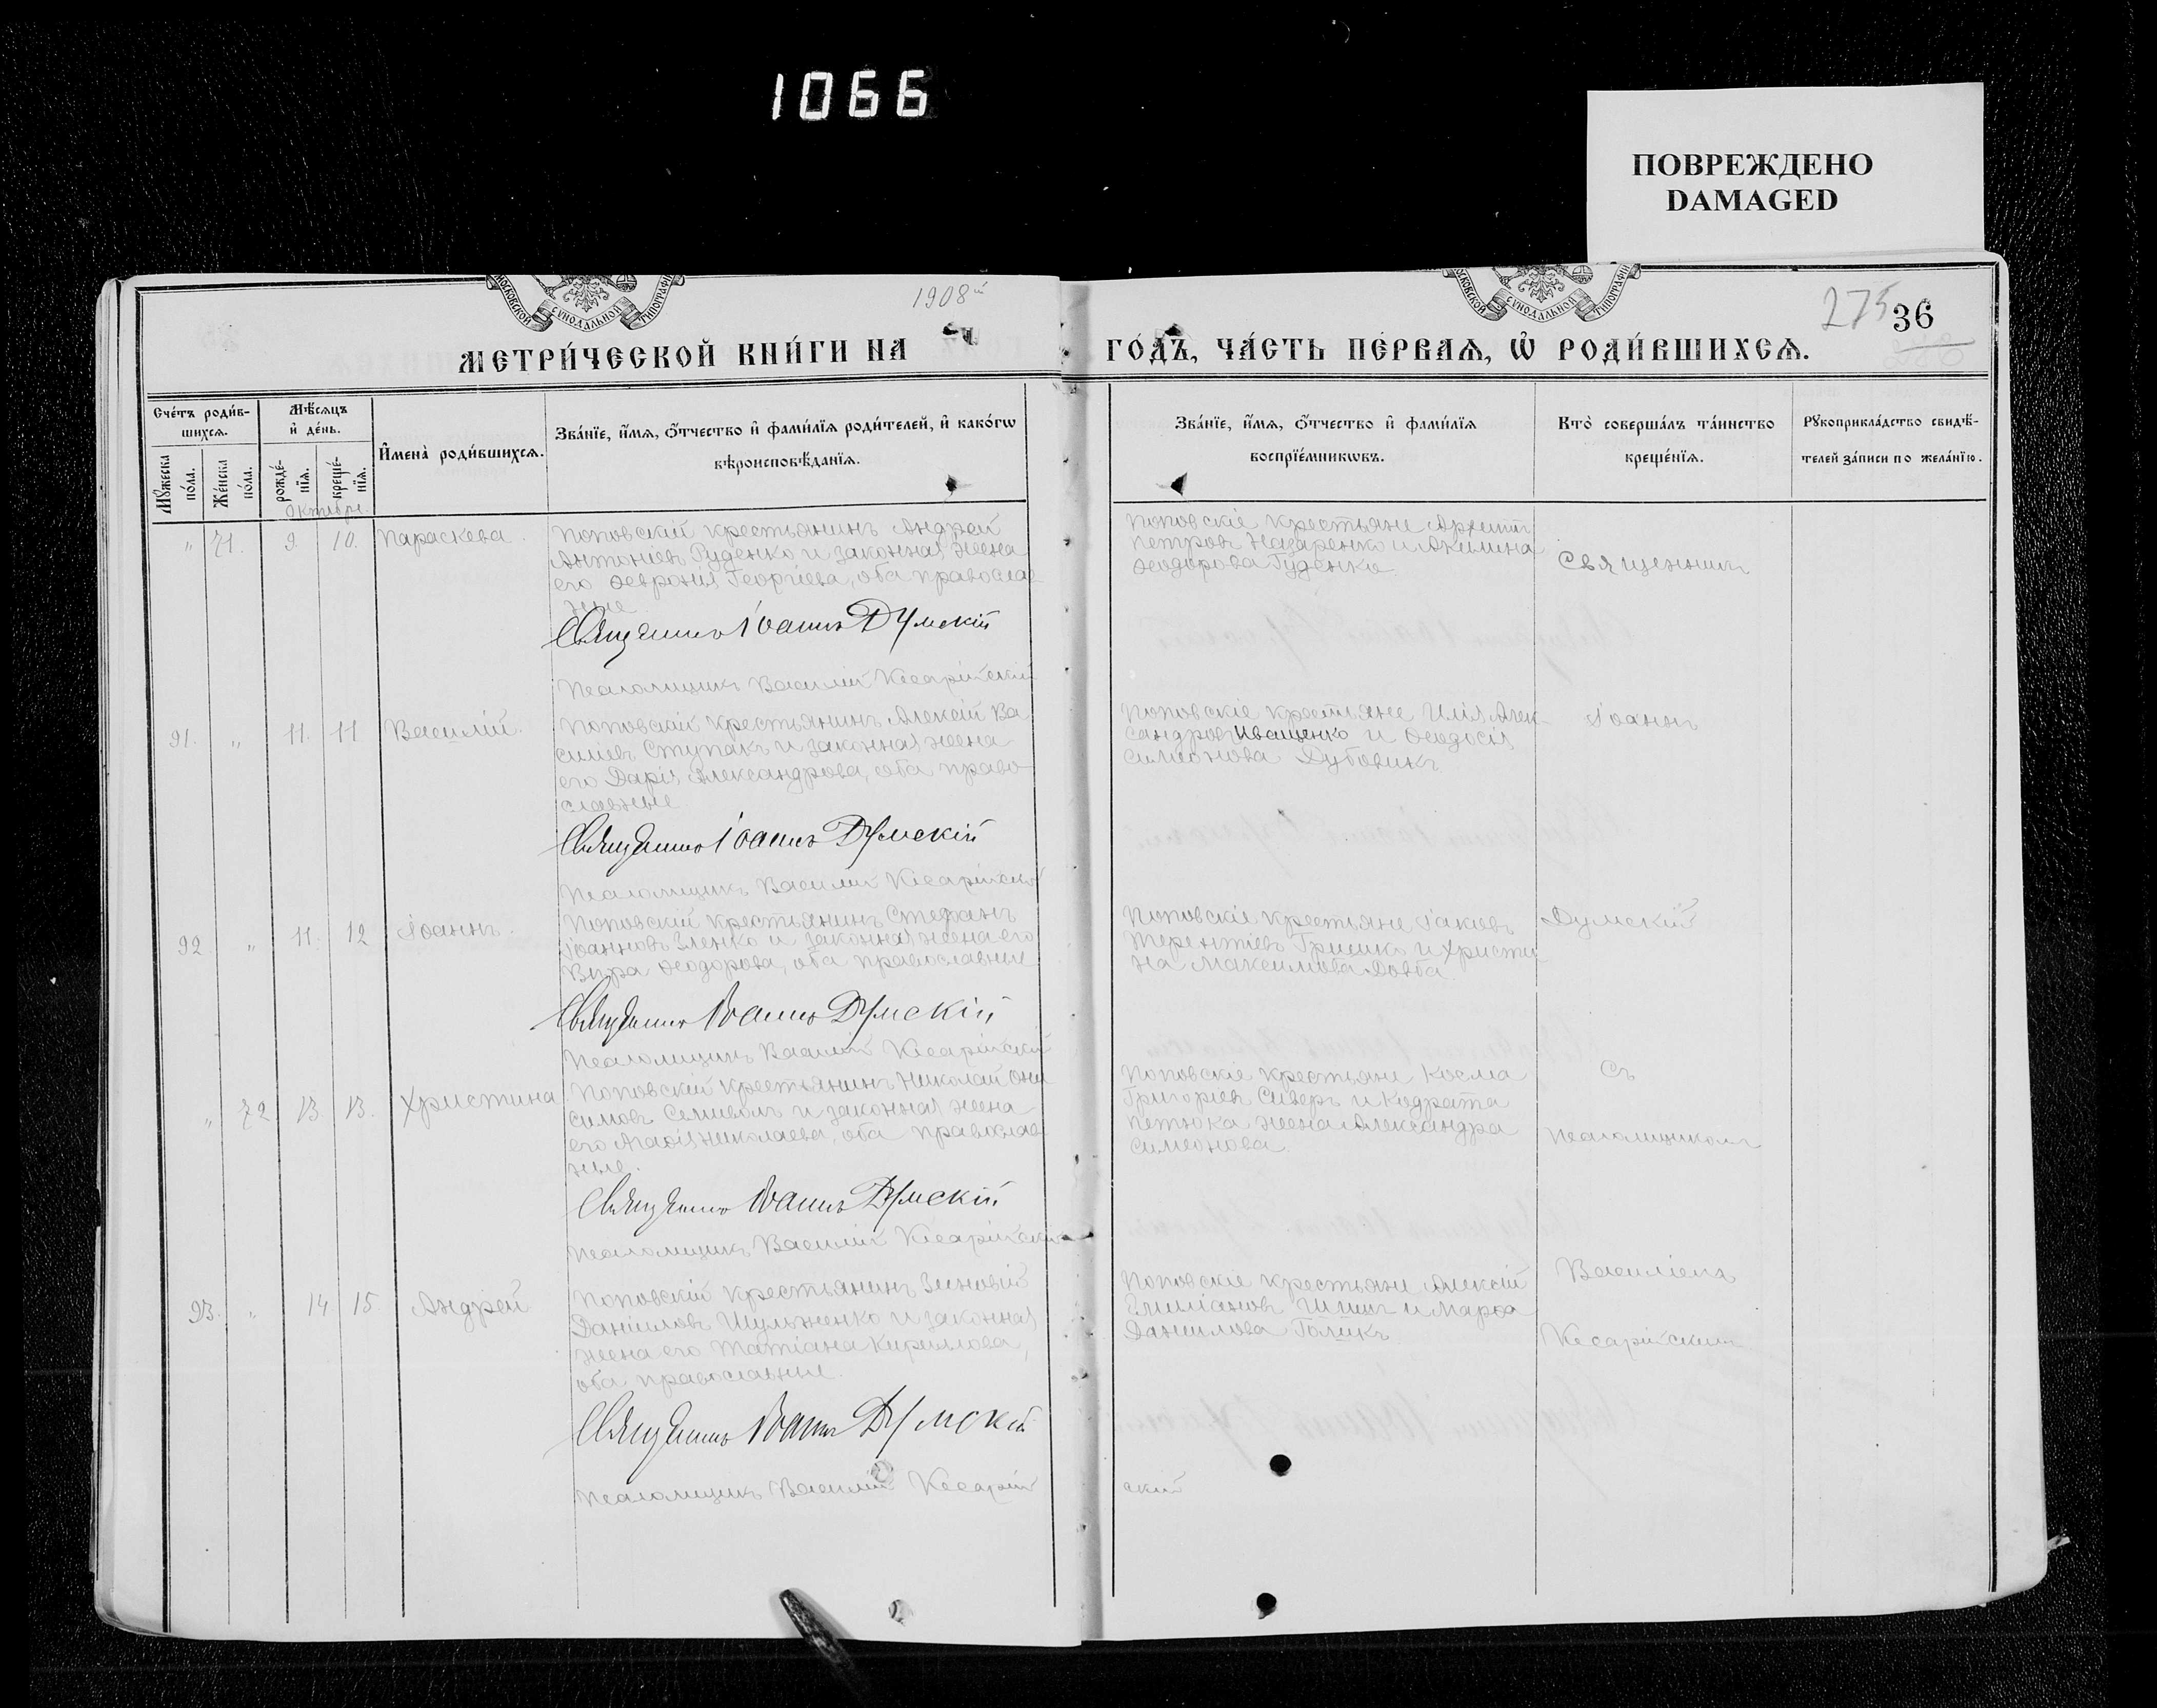 1066
ПОВРЕЖДЕНО
DAMAGED
МОСКОВСКОЙ СѴНОДАЛЬНОЙ ТИПОГРАФІИ
МОСКОВСКОЙ СѴНОДАЛЬНОЙ ТИПОГРАФІИ
1908й
275 36
МЕТРИ́ЧЕСКОЙ КНИ́ГИ НА ГО́ДЪ, ЧА́СТЬ ПЕ́РВАѦ, Ѡ҆ РОДИ́ВШИХСѦ.
Сче́тъ роди́в-
шихсѧ.
Мꙋ́жеска
по́ла.
Же́нска
по́ла.
Мѣ́сѧцъ
и҆ де́нь.
рожде́-
нїѧ.
креще́-
нїѧ.
И҆мена̀ роди́вшихсѧ.
Зва́нїе, и҆́мѧ, ѻ҆́тчество и҆ фами́лїѧ роди́телей, и҆ како́гѡ
вѣроисповѣ́данїѧ.
Зва́нїе, и҆́мѧ, ѻ҆́тчество и҆ фами́лїѧ
воспрїе́мникѡвъ.
Кто̀ соверша́лъ та́инство
креще́нїѧ.
Рꙋкоприкла́дство свидѣ́-
телей за́писи по жела́нїю.
Октябрь.
" 71. 9. 10. Параскева.
Поповскій крестьянинъ Андрей
Антоніевъ Руденко и законная жена
его Ѳевронія Георгіева, оба православ
ные.
Священникъ Іоаннъ Думскій
Псаломщикъ Василій Кесарійскій
Поповскіе крестьяне
Петровъ Назаренко и Акилина
Ѳеодорова Руденко.
Священникъ
91. " 11. 11 Василій.
Поповскій крестьянинъ Алексій Ва
силіевъ Ступакъ и законная жена
его Дарія Александрова, оба право
славные
Священникъ Іоаннъ Думскій
Псаломщикъ Василій Кесарійскій
Поповскіе крестьяне Илія Алек-
сандровъ Иващенко и Ѳеодосія
Симеонова Дубовикъ.
Іоаннъ
92. " 11. 12 Іоаннъ.
Поповскій крестьянинъ Стефанъ
Іоанновъ Зленко и законная жена его
Вѣра Ѳеодорова, оба православные
Священникъ Іоаннъ Думскій
Псаломщикъ Василій Кесарійскій
Поповскіе крестьяне Іаковъ
Терентіевъ Гришко и Христи
на Максимова Довба.
Думскій
" 72 13. 13. Христина
Поповскій крестьянинъ Николай Они
симовъ и законная жена
его Агаѳія Николаева, оба православ
ные.
Священникъ Іоаннъ Думскій
Псаломщикъ Василій Кесарійскій
Поповскіе крестьяне Косма
Григоріевъ Сиверъ и Кодрата
Петюка жена Александра
Симеонова.
Съ
Псаломщикомъ
93. " 14 15. Андрей
Поповскій крестьянинъ Зиновій
Даніиловъ Шульженко и законная
жена его Татіана Кириллова,
оба православные.
Священникъ Іоаннъ Думскій
Псаломщикъ Василій Кесарій
скій
Поповскіе крестьяне Алексій
Емиліановъ и Марѳа
Даніилова Голикъ.
Василіемъ
Кесарійскимъ